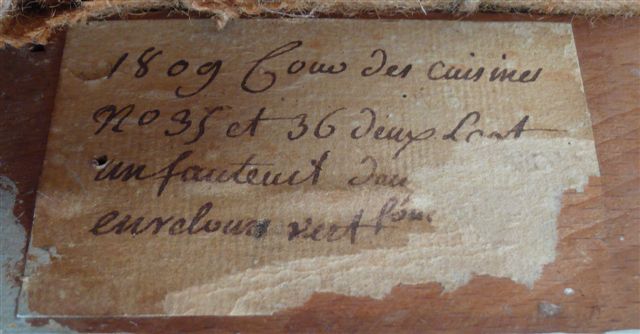 1809 Cour des cuisines
No 35 et 36 deux
un fauteuil
en velours vert